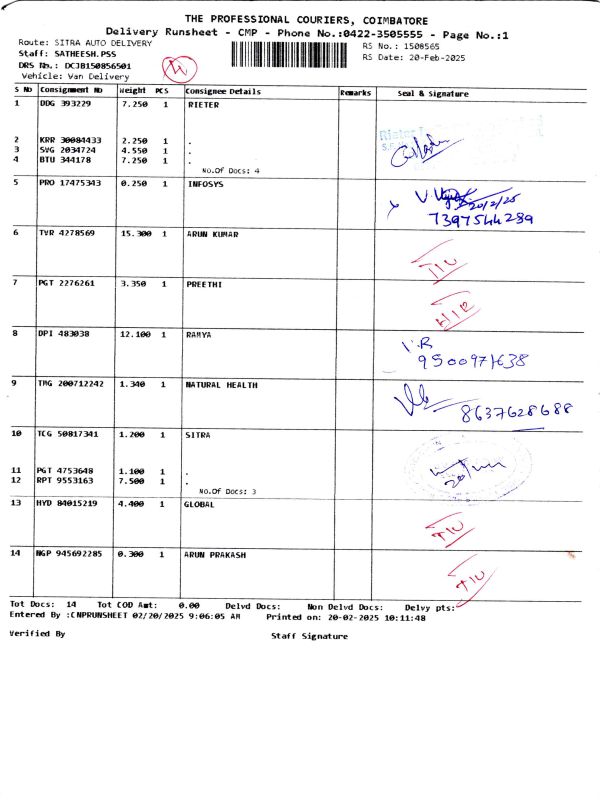 THE PROFESSIONAL COURIERS, COIMBATORE
Delivery Runsheet - CMP - Phone No.:0422-3505555 - Page No.:1
Route: SITRA AUTO DELIVERY
RS No.: 1508565
Staff: SATHEESH.PSS
RS Date: 20-Feb-2025
DRS No.: DCJB150856501
Vehicle: Van Delivery
S No Consignment No Weight PCS Consignee Details Remarks Seal & Signature
1 DDG 393229 7.250 1 RIETER
2 KRR 30084433 2.250 1 .
3 SVG 2034724 4.550 1 .
4 BTU 344178 7.250 1 .
No.Of Docs: 4
5 PRO 17475343 0.250 1 INFOSYS
20/2/25
7397544289
6 TYR 4278569 15.300 1 ARUN KUMAR
7 PGT 2276261 3.350 1 PREETHI
8 DPI 483038 12.100 1 RAMYA
V.R
9500971638
9 TMG 200712242 1.340 1 NATURAL HEALTH
8637628688
10 TCG 50817341 1.200 1 SITRA
11 PGT 4753648 1.100 1 .
12 RPT 9553163 7.500 1 .
No.Of Docs: 3
13 HYD 84015219 4.400 1 GLOBAL
14 NGP 945692285 0.300 1 ARUN PRAKASH
Tot Docs: 14 Tot COD Amt: 0.00 Delvd Docs: Non Delvd Docs: Delvy pts:
Entered By :CNPRUNSHEET 02/20/2025 9:06:05 AM Printed on: 20-02-2025 10:11:48
Verified By Staff Signature